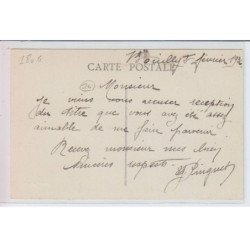 1806
CARTE POSTALE
février 192
Monsieur
Je viens vous accuser réception
du titre que vous avez été assez
aimable de me faire parvenir.
Recevez monsieur mes bien
sincères respects